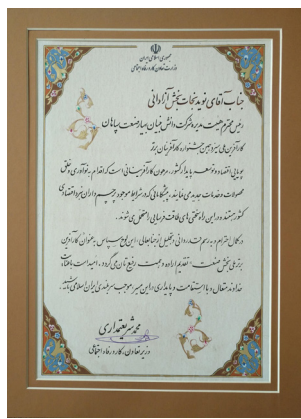 جمهوری اسلامی ایران
وزارت تعاون، کار و رفاه اجتماعی
جناب آقای نوید نجات بخش آزادانی
رئیس محترم هیئت مدیره شرکت دانش بنیان بهیار صنعت سپاهان
کارآفرین ملی سیزدهمین جشنواره کارآفرینان برتر
پویایی اقتصاد و توسعه پایدار کشور، مرهون کارآفرینانی است که اقدام به نوآوری و خلق
محصولات و خدمات جدید می نمایند. پیشگامانی که در شرایط موجود پرچم داران نبرد اقتصادی
کشور هستند و در این راه سختی های طاقت فرسایی را متحمل می شوند.
در کمال احترام و به رسم قدردانی و تجلیل از جنابعالی، این لوح سپاس به عنوان کارآفرین
برتر ملی بخش صنعت تقدیم اراده و همت رفیع تان می گردد. امید است با عنایات
خداوند متعال و با استقامت و پایداری در این مسیر موجب سربلندی ایران اسلامی باشید.
محمد شریعتمداری
وزیر تعاون، کار و رفاه اجتماعی